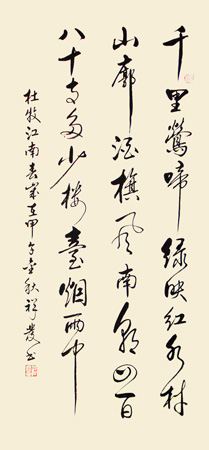 千里鶯啼绿映红水村
山廓酒旗风南朝四百
八十寺多少楼臺烟雨中
杜牧江南春歲在甲午金秋祥